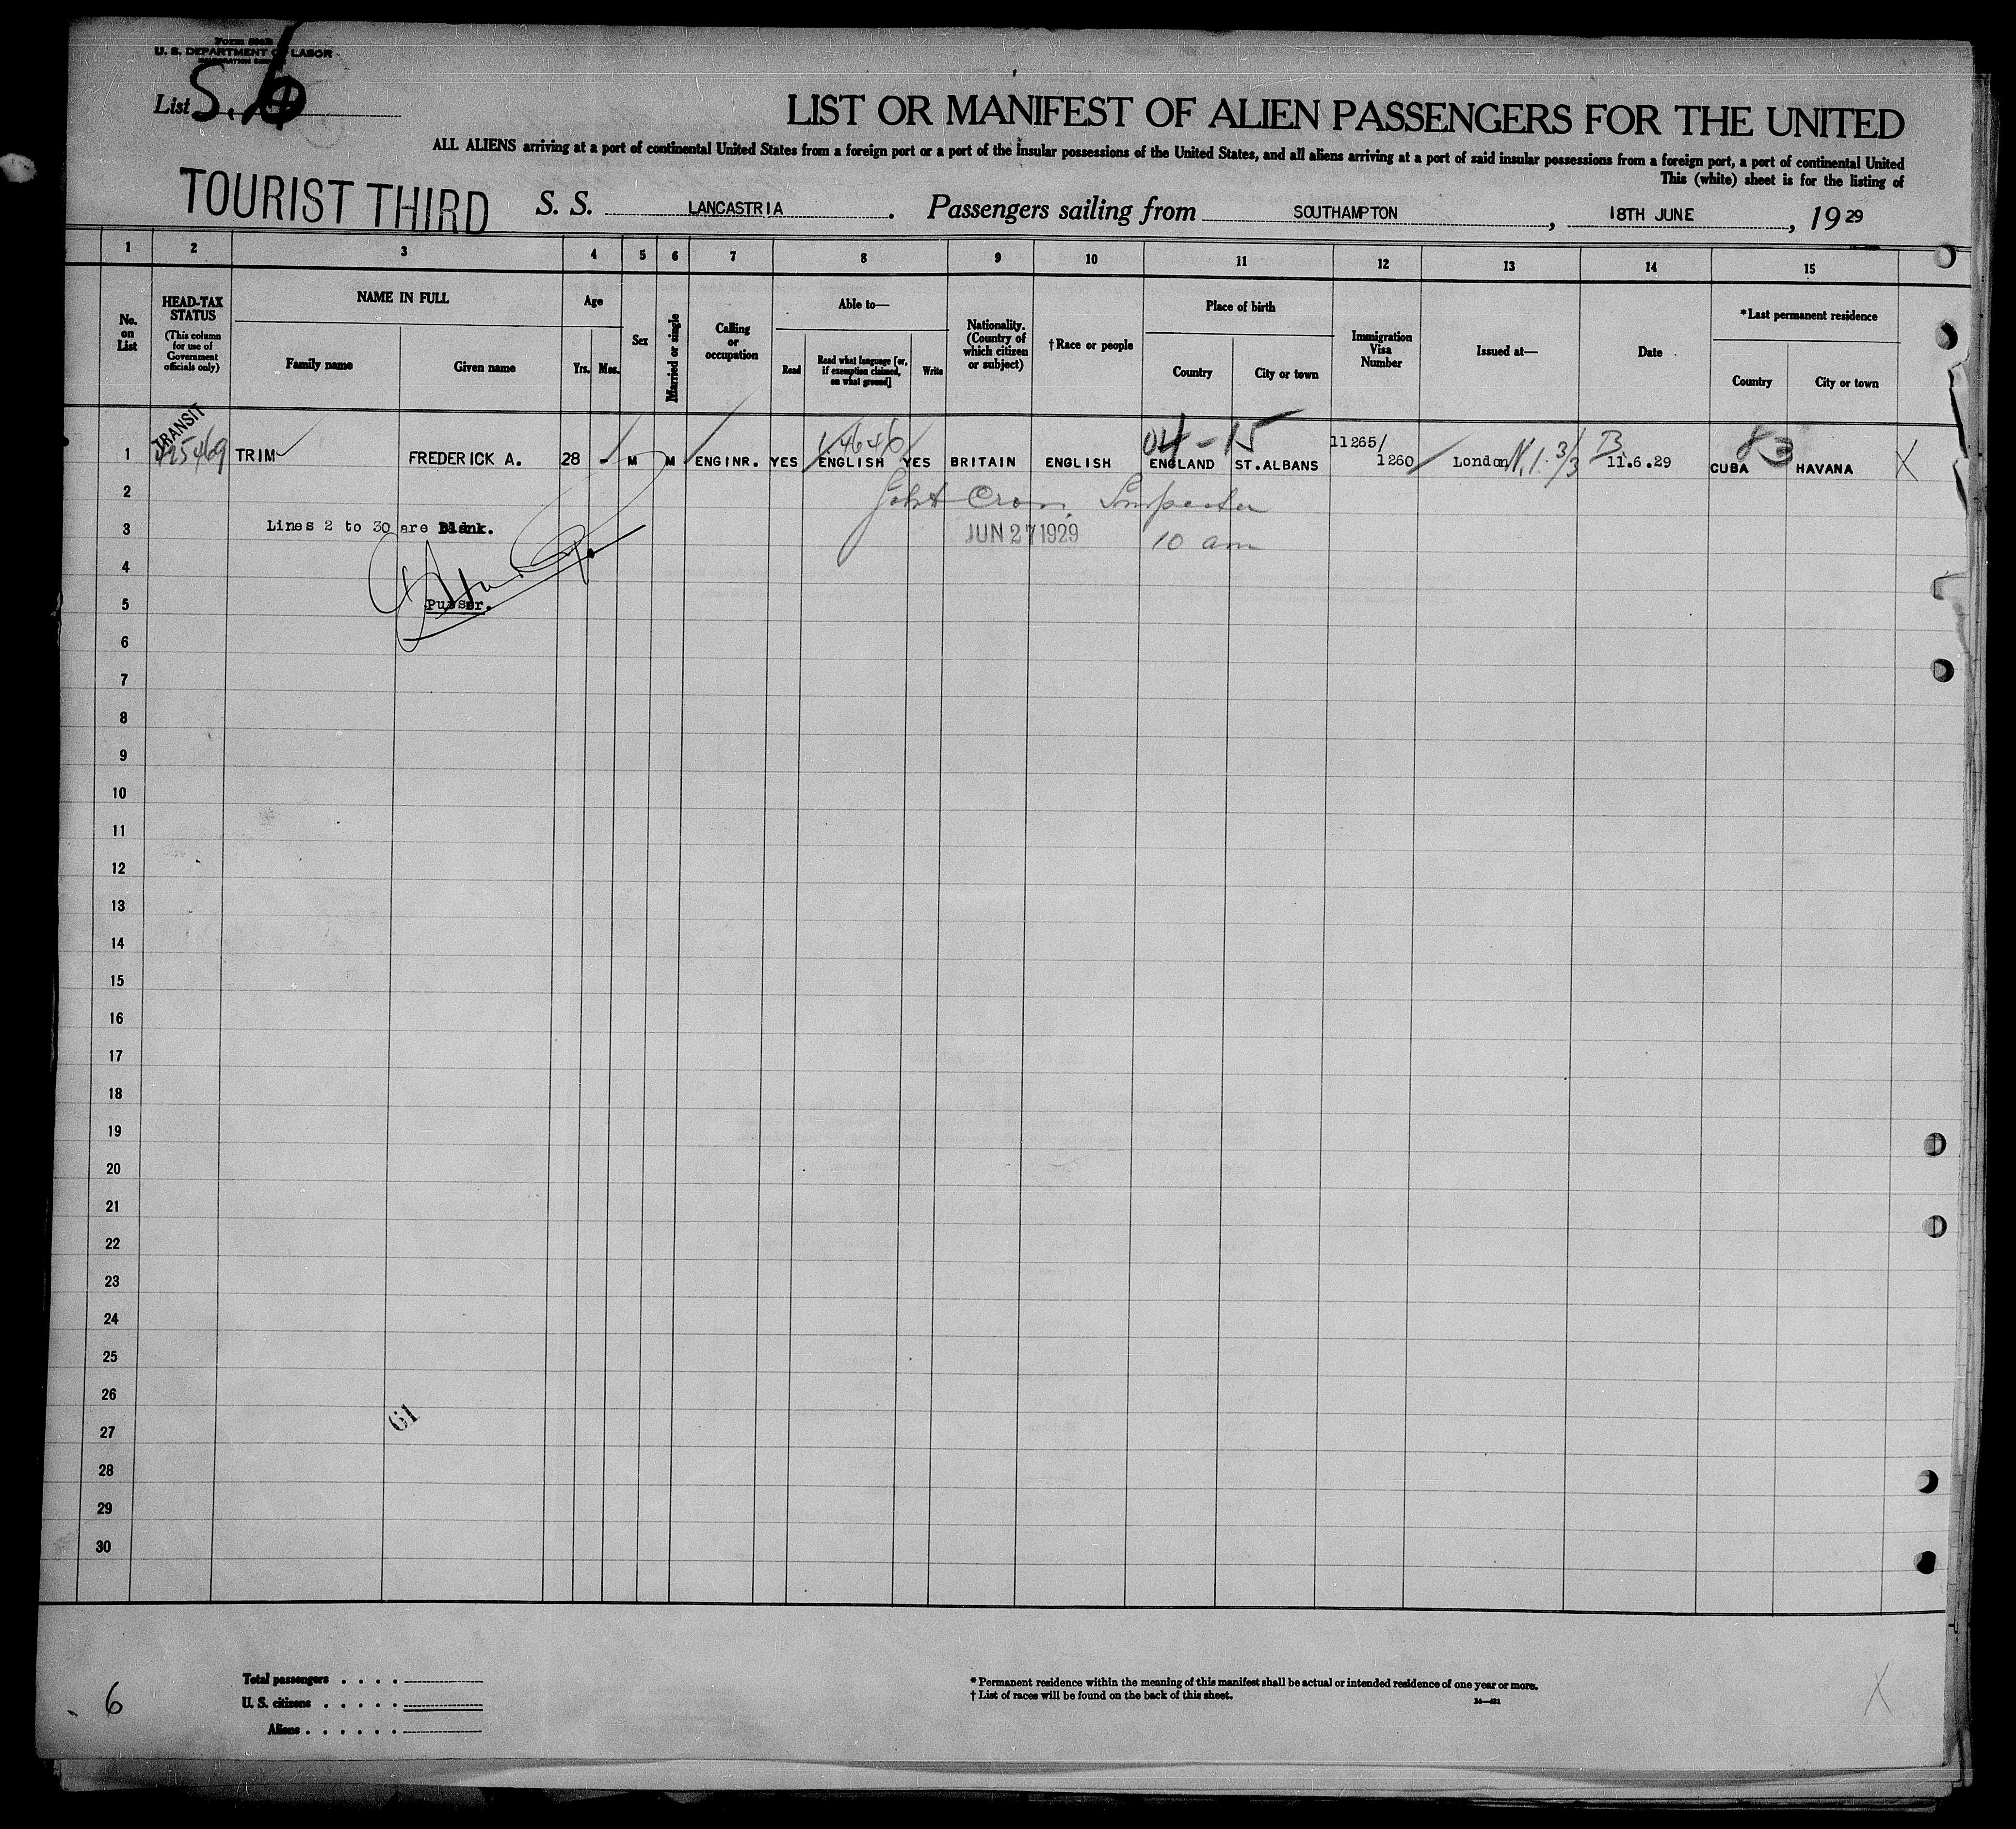 U. S. DEPARTMENT OF LABOR
IMMIGRATION SERVICE
List S. 6
LIST OR MANIFEST OF ALIEN PASSENGERS FOR THE UNITED
ALL ALIENS arriving at a port of continental United States from a foreign port or a port of the insular possessions of the United States, and all aliens arriving at a port of said insular possessions from a foreign port, a port of continental United
This (white) sheet is for the listing of
TOURIST THIRD S. S. LANCASTRIA. Passengers sailing from SOUTHAMPTON, 18TH JUNE, 1929
1 2 3 4 5 6 7 8 9 10 11 12 13 14 15
No. on List
HEAD-TAX STATUS (This column for use of Government officials only)
NAME IN FULL
Family name
Given name
Age
Yrs. Mos.
Sex
Married or single
Calling or occupation
Able to—
Read
Read what language [or, if exemption claimed, on what ground]
Write
Nationality. (Country of which citizen or subject)
†Race or people
Place of birth
Country
City or town
Immigration Visa Number
Issued at—
Date
*Last permanent residence
Country
City or town
TRANSIT 04-15 83
1 TRIM FREDERICK A. 28 - M M ENGINR. YES ENGLISH YES BRITAIN ENGLISH ENGLAND ST.ALBANS 11265/1260 London 11.6.29 CUBA HAVANA X
2 Inspector
3 Lines 2 to 30 are Blank. JUN 27 1929 10 am
4
5 Purser.
6
7
8
9
10
11
12
13
14
15
16
17
18
19
20
21
22
23
24
25
26
61
27
28
29
30
Total passengers . . . .
U. S. citizens . . . . .
Aliens . . . . . .
6
* Permanent residence within the meaning of this manifest shall be actual or intended residence of one year or more.
† List of races will be found on the back of this sheet.
X